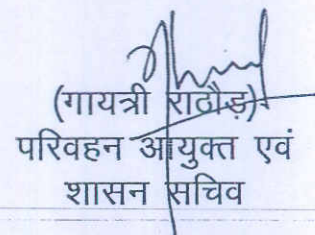 (गायत्री राठौड़)
परिवहन आयुक्त एवं
शासन सचिव